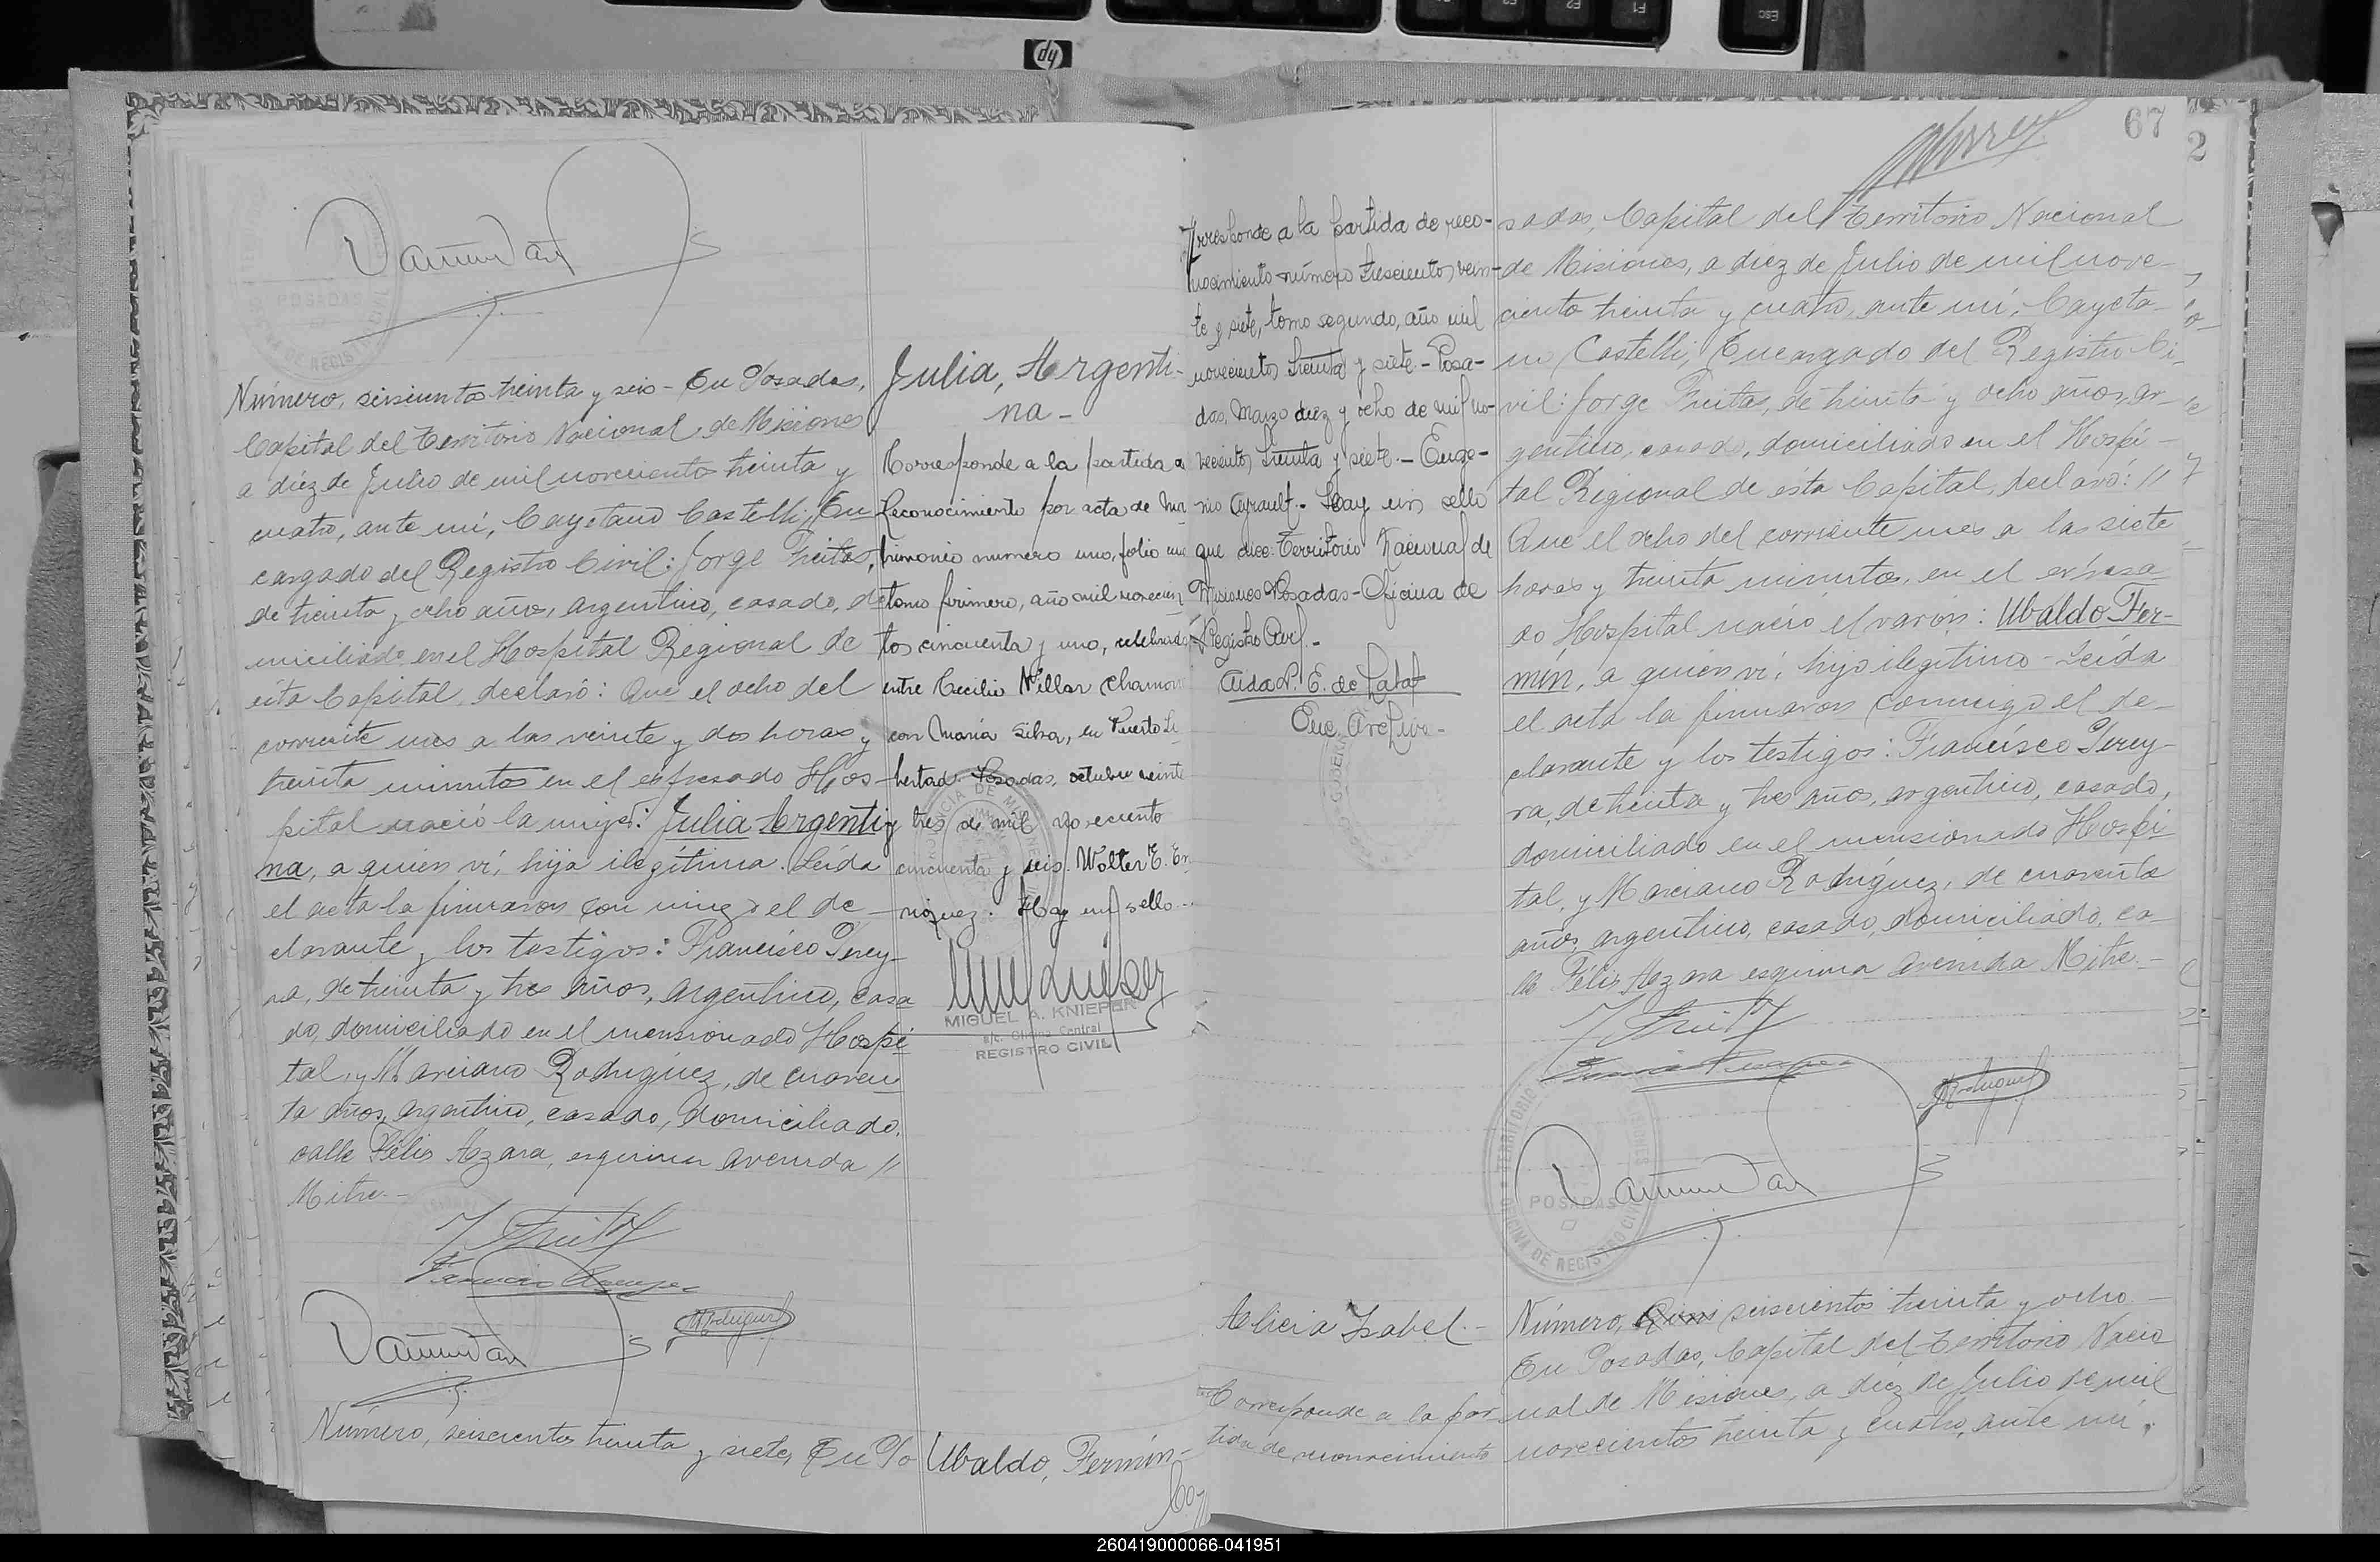 Número, seiscientos treinta y seis - En Posadas,
Capital del Territorio Nacional de Misiones
a diéz de Julio de mil novecientos treinta y
cuatro, ante mí, Cayetano Castelli, En
cargado del Registro Civil: Jorge Freitas,
de treinta y ocho años, argentino, casado, do
miciliado en el Hospital Regional de
esta Capital, declaró: Que el ocho del
corriente mes a las veinte y dos horas y
treinta minutos en el expresado Hos-
pital nació la mujer: Julia Argenti
na, a quien ví, hija ilegítima. Leída
el acta la firmaron con migo el de-
clarante y los testigos: Francisco Perey-
ra, de treinta y tres años, argentino, casa
do, domiciliado en el mensionado Hospi
tal, y Marciano Rodríguez, de cuaren
ta años, argentino, casado, domiciliado,
calle Félix Azara, esquina avenida //
Mitre.-
Julia, Argenti-
na-
Corresponde a la partida
Reconocimiento por acta de ma
trimonio numero uno, folio
tomo primero, año mil novecien
tos cincuenta y uno, celebrado
entre Cecilio Villar Chamorro
con María Silva, en Puerto Li
bertad. Posadas, octubre veinte
y tres de mil novecientos
cincuenta y seis. Walter E. En
riquez. Hay un sello.-
MIGUEL A. KNIEPER
a/c. Oficina Central
REGISTRO CIVIL
Número, seiscientos treinta y siete, En Po
Ubaldo, Fermín-
Co
67
2
rresponde a la partida de reco-
nocimiento número trescientos vein-
te y siete, tomo segundo, año mil
novecientos treinta y siete - Posa-
das, Marzo diez y ocho de mil no-
vecientos treinta y siete.- Euge-
nio Ayrault.- Hay un sello
que dice: Territorio Nacional de
Misiones Posadas - Oficina de
Registro Civil.-
Aida P. E. de
Enc. Archivo-
sadas, Capital del Territorio Nacional
de Misiones, a diéz de Julio de mil nove-
ciento treinta y cuatro, ante mí, Cayeta-
no Castelli, Encargado del Registro Ci-
vil: Jorge Freitas, de treinta y ocho años, ar-
gentino, casado, domiciliado en el Hospi-
tal Regional de ésta Capital, declaró: //
Que el ocho del corriente mes a las siete
horas y treinta minutos, en el expresa
do Hospital nació el varón: Ubaldo Fer-
mín, a quien ví, hijo ilegítimo - Leída
el acta la firmaron conmigo el de-
clarante y los testigos: Francisco Perey-
ra, de treinta y tres años, argentino, casado,
domiciliado en el mensionado Hospi
tal, y Marciano Rodríguez, de cuarenta
años, argentino, casado, domiciliado, ca-
lle Félix Azara esquina avenida Mitre.-
POSADAS
OFICINA DE REGISTRO CIVIL
Alicia Isabel.-
Corresponde a la par
tida de reconocimiento
Número, seiscientos treinta y ocho.-
En Posadas, Capital del Territorio Nacio
nal de Misiones, a diéz de Julio de mil
novecientos treinta y cuatro, ante mí,
260419000066-041951